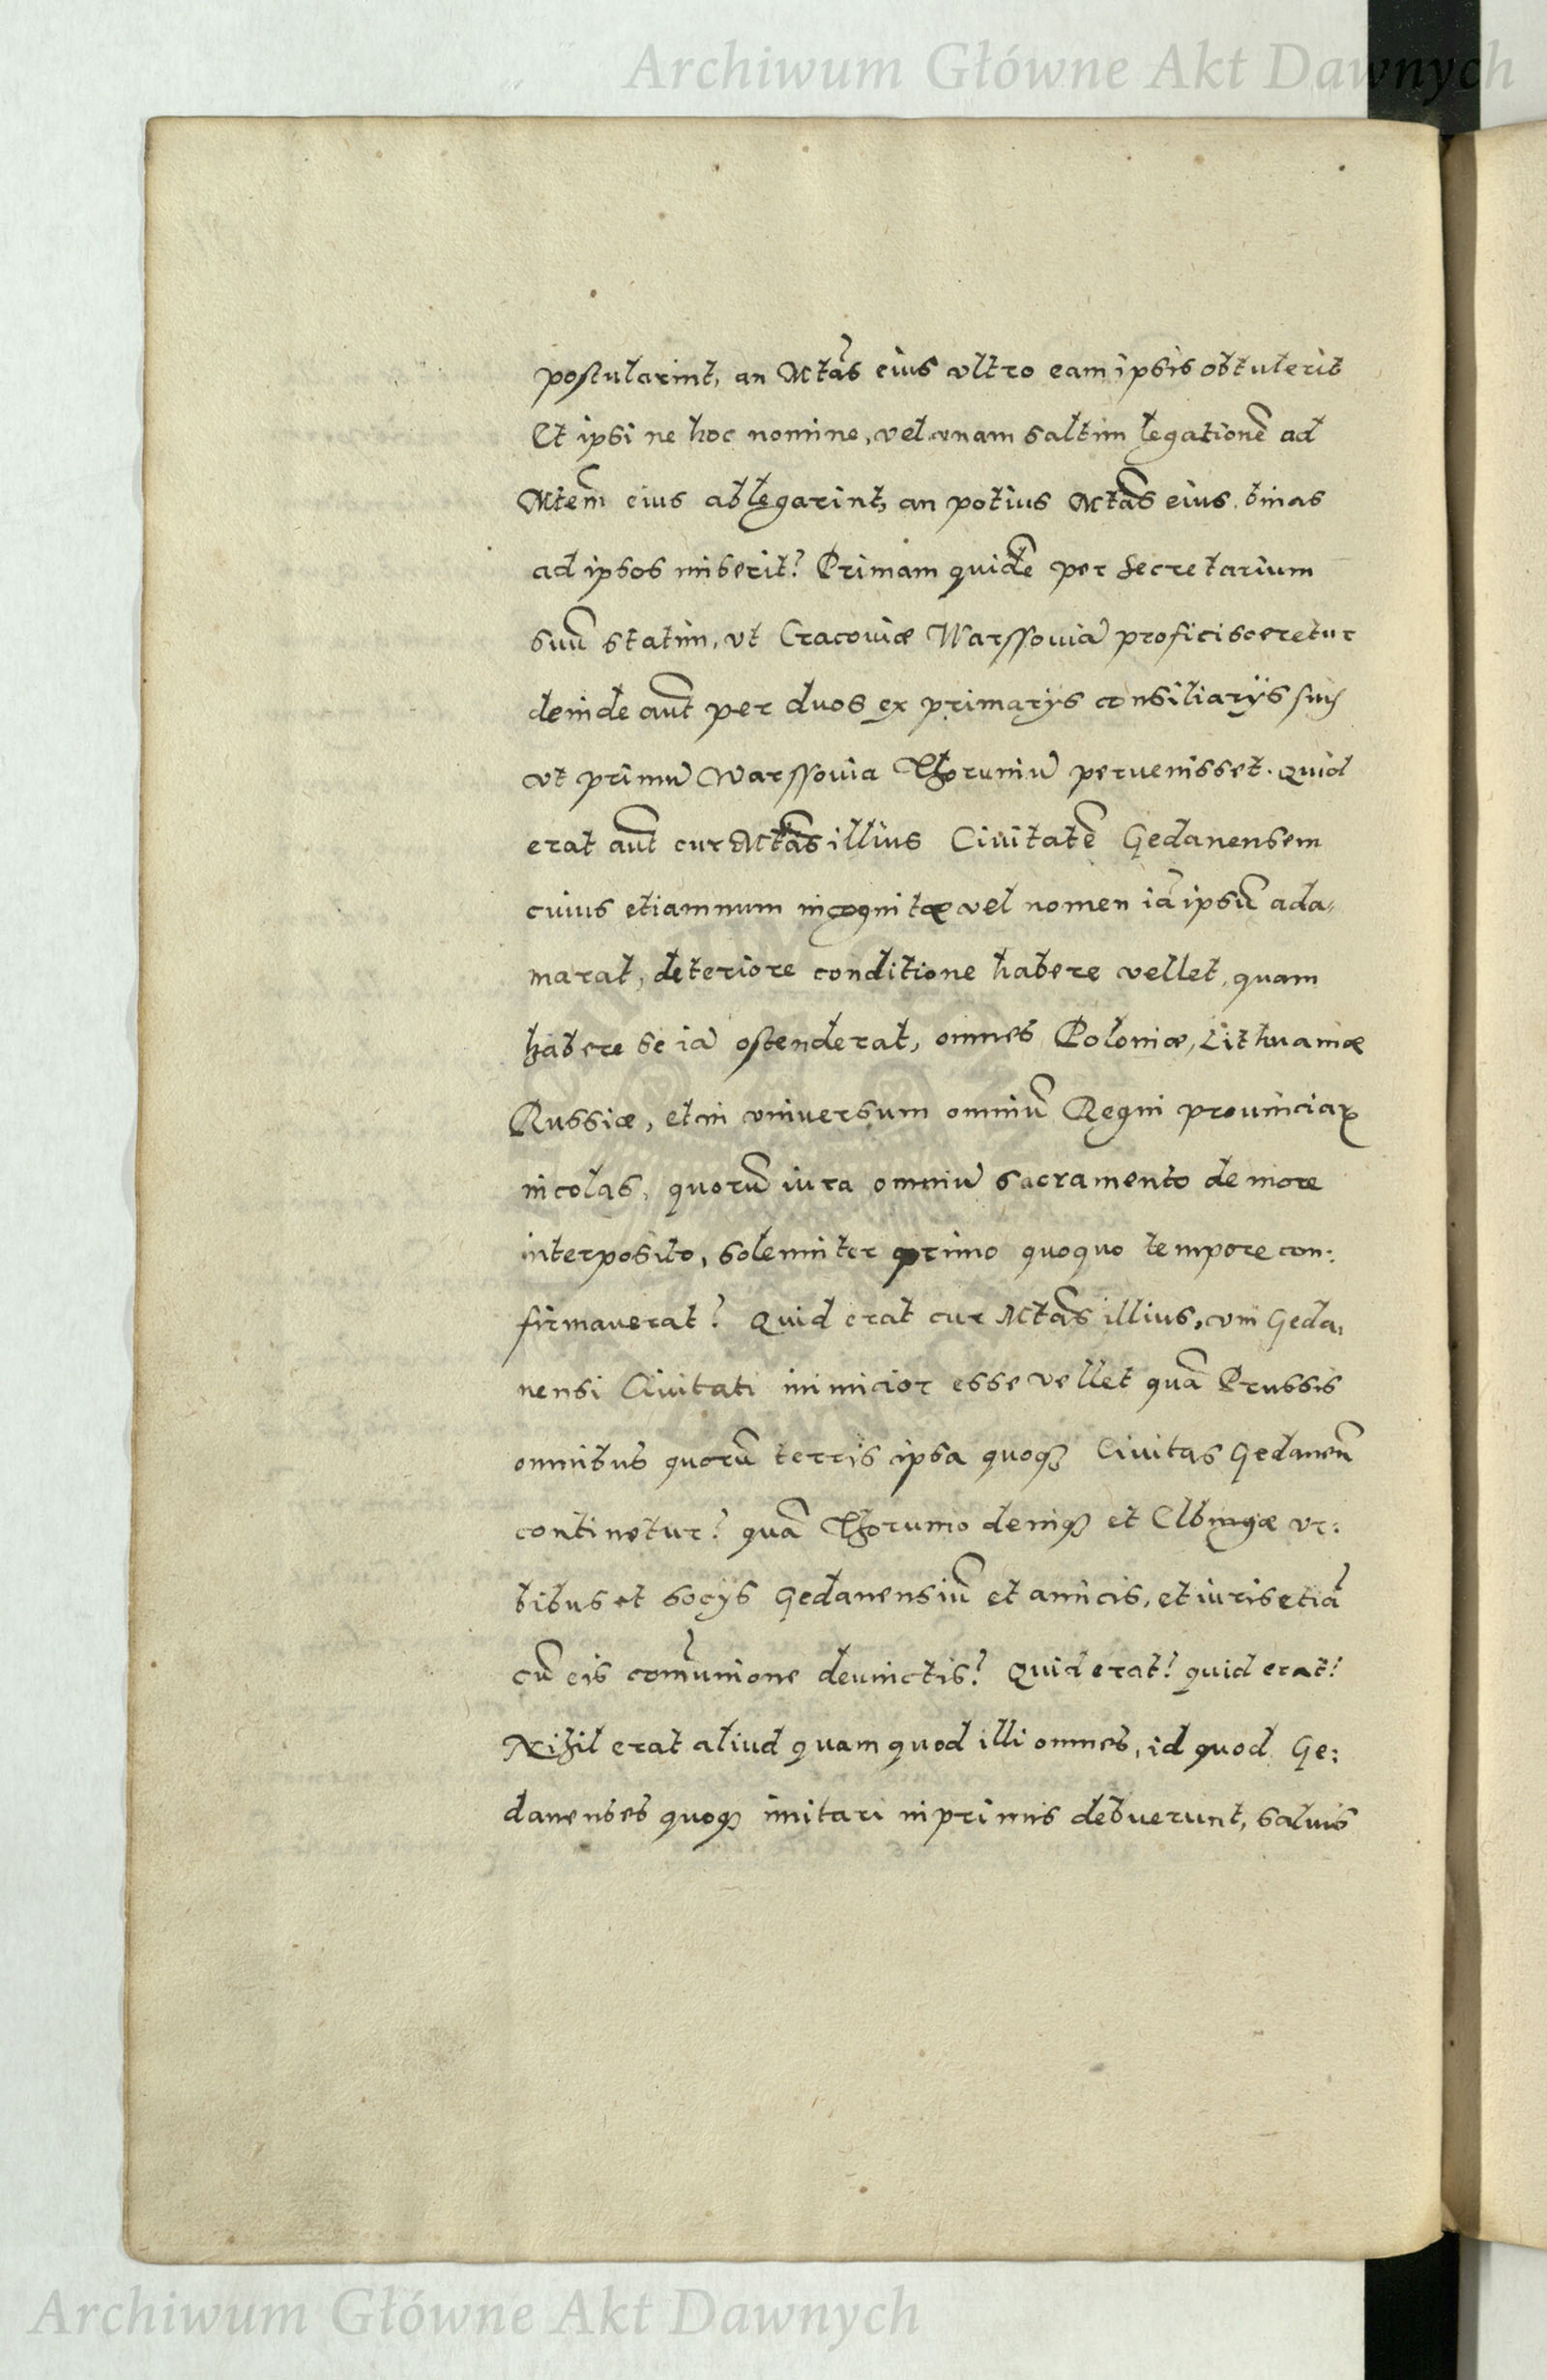 Archiwum Główne Akt Dawnych
postularint, an Mtãs eius vltro eam ipsis obtulerit
Et ipsi ne hoc nomine, vel vnam saltim legationẽ ad
Mtem̃ eius ablegarint, an potius Mtãs eius binas
ad ipsos miserit? Primam quidẽ per Secretarium
suũ statim, vt Cracouiæ Warssouiã proficisceretur
deinde aũt per duos ex primarijs consiliarijs suis
vt primũ Warssouia Thoruniũ peruenisset. Quid
erat aũt cur Mtãs illius Ciuitatẽ Gedanensem
cuius etiamnum incognitæ vel nomen iã ipsũ ada,
marat, deteriore conditione habere vellet, quam
habere se iã ostenderat, omnes Poloniæ, Lithuaniæ
Russiæ, et in vniuersum omniũ Regni prouinciaꝝ
incolas, quorũ iura omniũ sacramento de more
interposito, solemniter primo quoquo tempore con:
firmauerat? Quid erat cur Mtãs illius, vni Geda,
nensi Ciuitati inimicior esse vellet quã Prussis
omnibus quorũ terris ipsa quoqȝ Ciuitas Gedaneñ
continetur? quã Thorunio deniqȝ et Elbingæ vr:
bibus et socijs Gedanensiũ et amicis, et iuris etiã
cũ eis com̃unione deuinctis? Quid erat? quid erat?
Nihil erat aliud quam quod illi omnes, id quod Ge:
danenses quoqȝ imitari inprimis debuerunt, saluis
Archiwum Główne Akt Dawnych